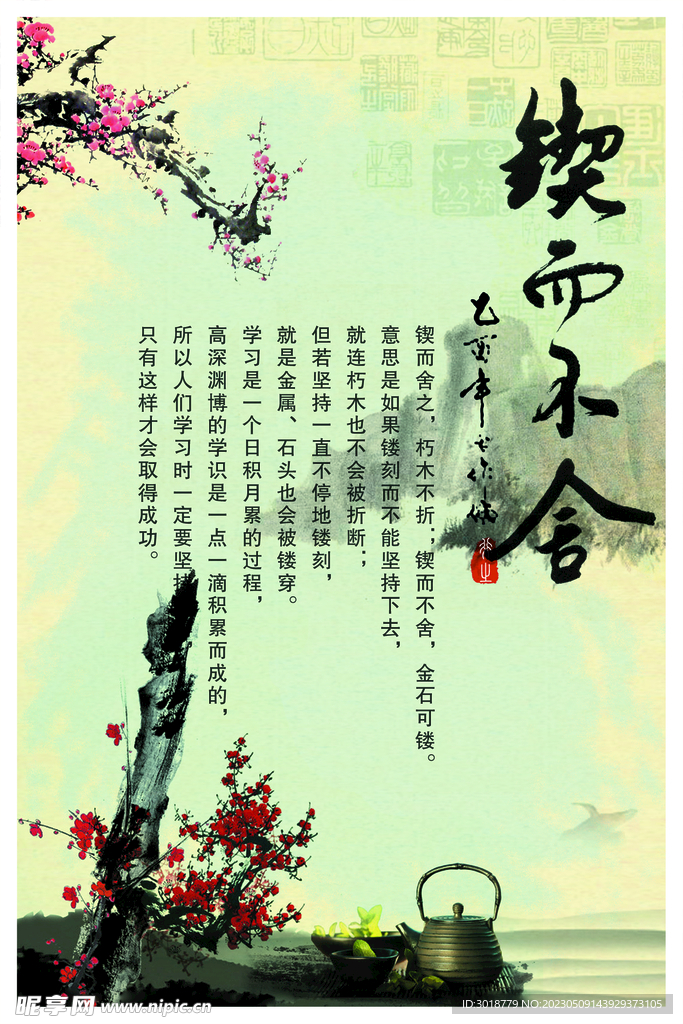 锲而不舍
乙酉年
锲而舍之，朽木不折；锲而不舍，金石可镂。
意思是如果镂刻而不能坚持下去，
就连朽木也不会被折断；
但若坚持一直不停地镂刻，
就是金属、石头也会被镂穿。
学习是一个日积月累的过程，
高深渊博的学识是一点一滴积累而成的，
所以人们学习时一定要坚持
只有这样才会取得成功。
昵享网 www.nipic.cn
ID:3018779 NO:20230509143929373105